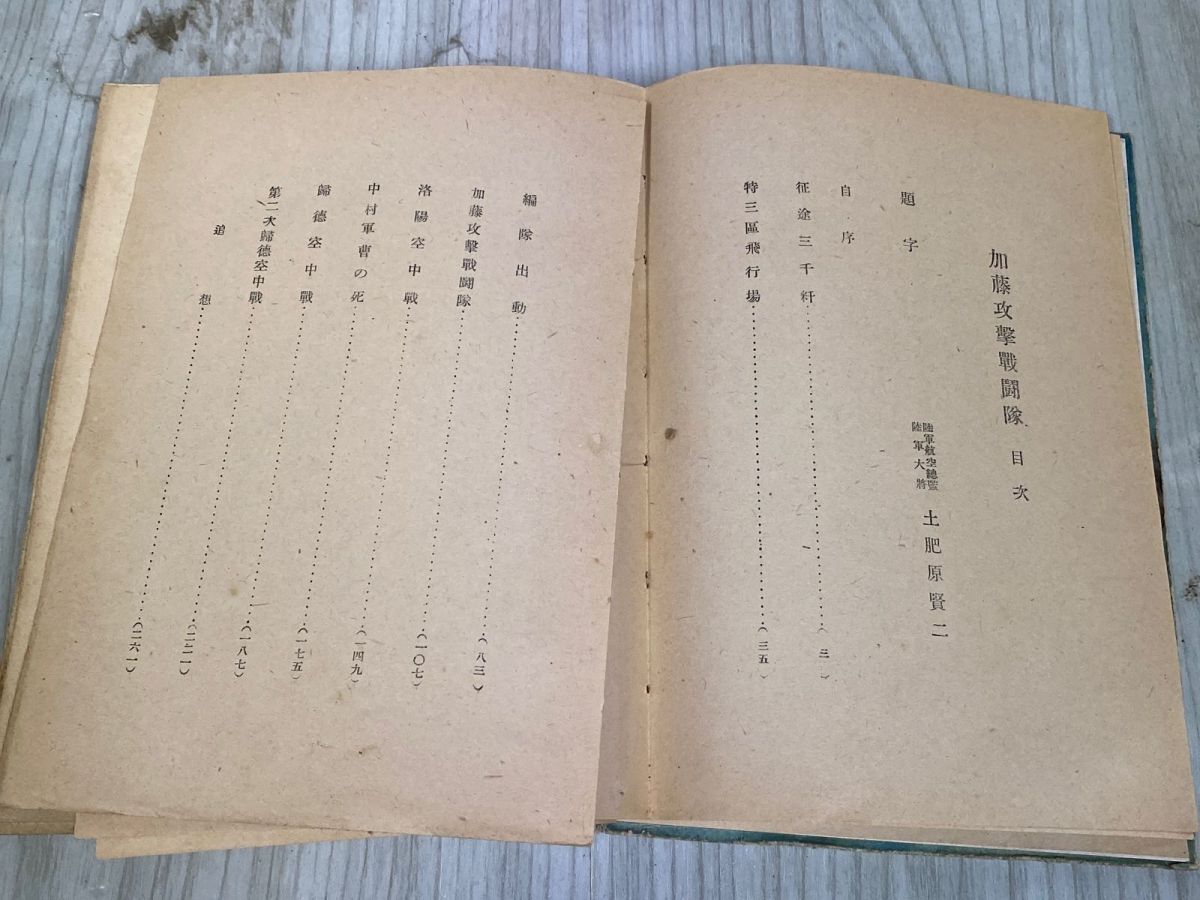 加藤攻擊戰鬪隊 目次
題字
陸軍航空總監
陸軍大將
土肥原賢二
自序
征途三千粁……(三)
特三區飛行場……(三五)
編隊出動……(八三)
加藤攻擊戰鬪隊……(一〇七)
洛陽空中戰……(一四九)
中村軍曹の死……(一七五)
歸德空中戰……(一八七)
第二次歸德空中戰……(二二一)
追想……(二六一)